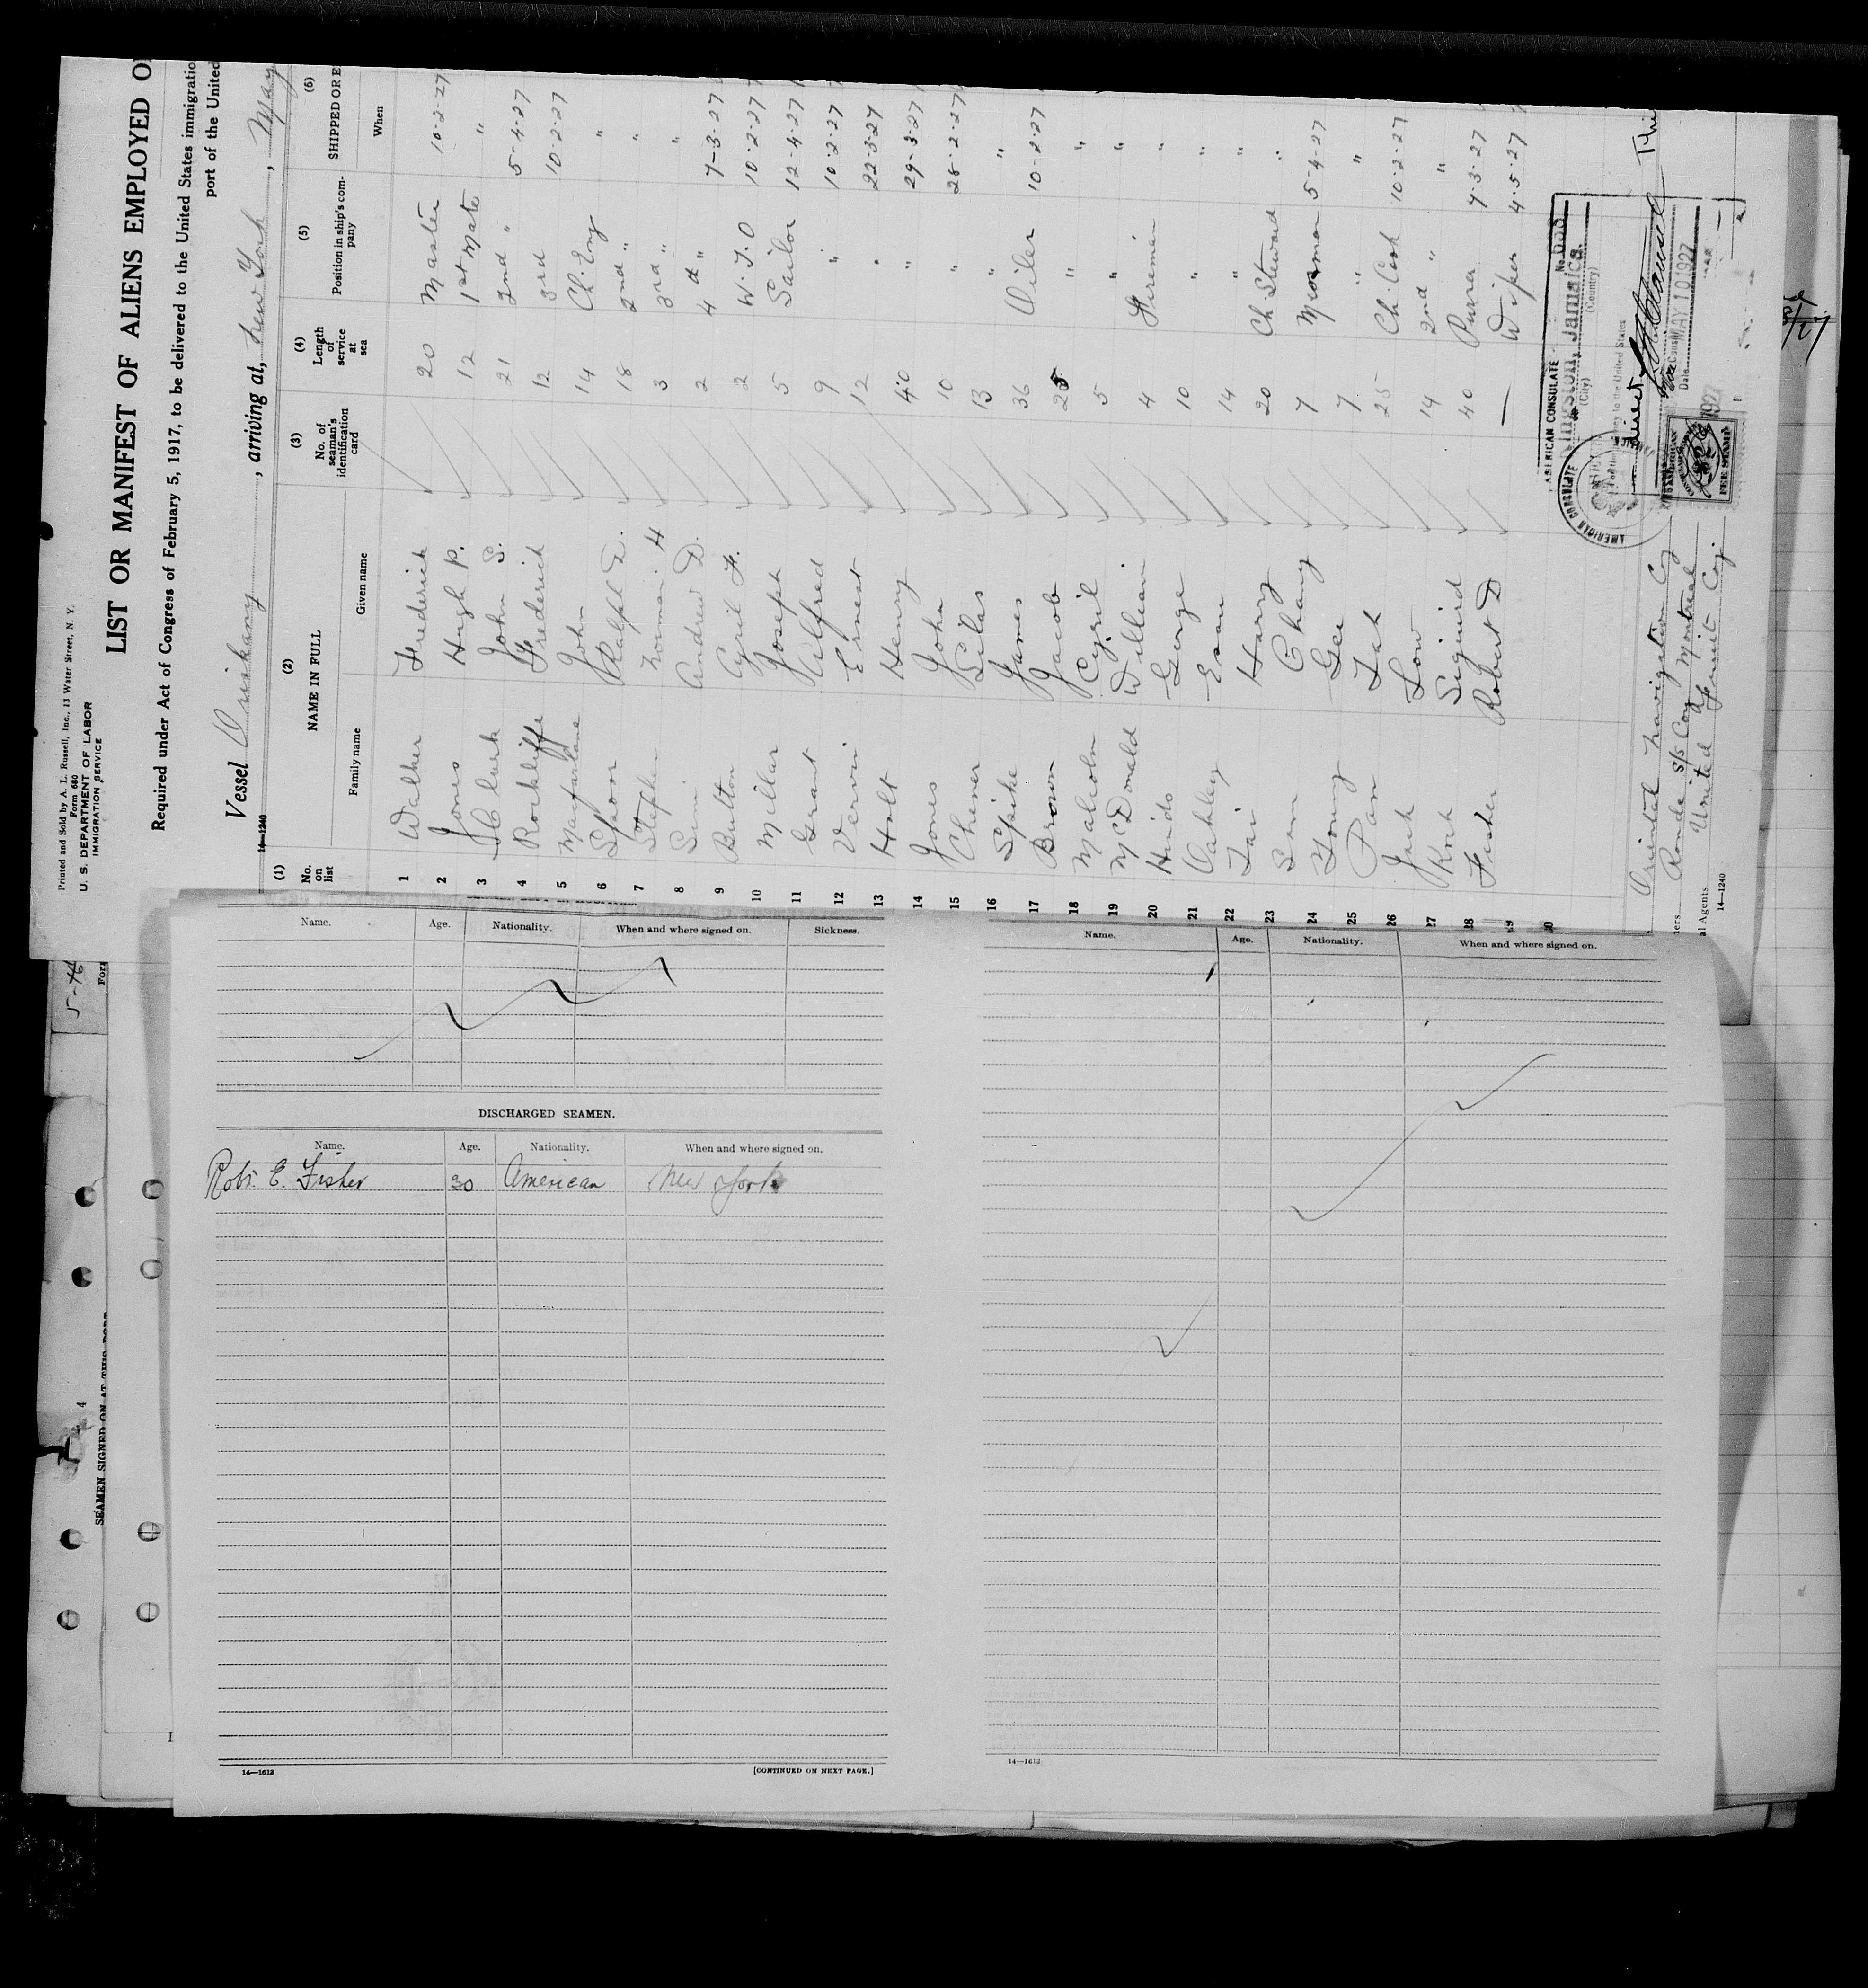 Printed and Sold by A. L. Russell, Inc., 13 Water Street, N. Y.
Form 680
U. S. DEPARTMENT OF LABOR
IMMIGRATION SERVICE
LIST OR MANIFEST OF ALIENS EMPLOYED O
Required under Act of Congress of February 5, 1917, to be delivered to the United States immigratio
port of the United
Vessel Oriskany, arriving at, New York, May
14—1240
(1) (2) (3) (4) (5) (6)
No. on list NAME IN FULL No. of seaman's identification card Length of service at sea Position in ship's company SHIPPED OR E
Family name Given name When
1 Walker Frederick 20 Master 10-2-27
2 Jones Hugh P. 12 1st Mate "
3 Clark John S. 21 2nd " 5-4-27
4 Rockliffe Frederick 12 3rd 10-2-27
5 Macfarlane John 14 Ch. Eng "
6 Spoor Ralph E. 18 2nd " "
7 Stephen Norman H 3 3rd " "
8 Sim Andrew D. 2 4th " 7-3-27
9 Bulton Cyril F. 2 W.T.O 10-2-27
10 Millar Joseph 5 Sailor 12-4-27
11 Grant Alfred 9 " 10-2-27
12 Ernest 12 " 22-3-27
13 Holt Henry 40 " 29-3-27
14 Jones John 10 " 28-2-27
15 Silas 13 " "
16 Spike James 36 Oiler 10-2-27
17 Brown Jacob 25 " "
18 Malcolm Cyril 5 " "
19 McDonald William 4 Fireman "
20 Hinds George 10 " "
21 Oakley Evan 14 " "
22 Tai Harry 20 Ch. Steward "
23 Sam Chang 7 Messman 5-4-27
24 Young Gee 7 " "
25 Pan Tak 25 Ch. Cook 10-2-27
26 Low 14 2nd " "
27 Sigurd 40 7-3-27
28 Fisher Robert D — Wiper 4-5-27
29
30
AMERICAN CONSULATE
No. 653
Kingston, Jamaica
(City) (Country)
to the United States
direct
Consul
MAY 10 1927
Date
AMERICAN CONSULATE
AMERICAN
FEE STAMP
Oriental Navigation Coy
s/s Coy of Montreal
al Agents United Fruit Coy.
14—1240
Name. Age. Nationality. When and where signed on. Sickness.
DISCHARGED SEAMEN.
Name. Age. Nationality. When and where signed on.
Robt. E. Fisher 30 American New York
14—1613
[CONTINUED ON NEXT PAGE.]
Name. Age. Nationality. When and where signed on.
14—1613
SEAMEN SIGNED ON AT THIS PORT